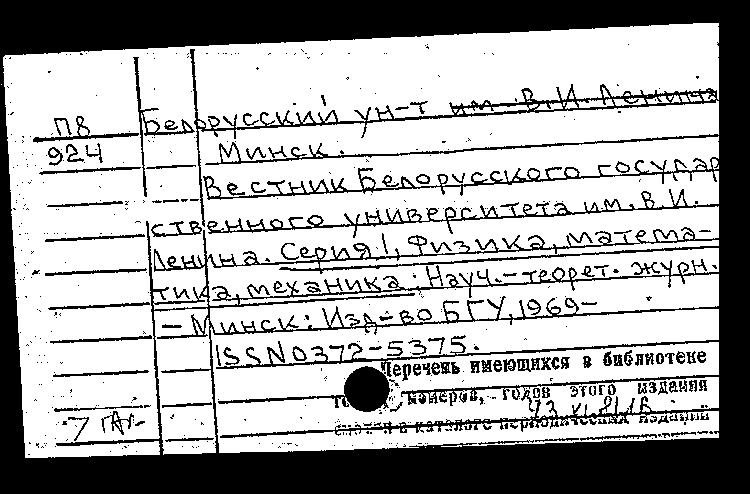 П8 Белорусский ун-т им. В.И. Ленина
924 Минск.
Вестник Белорусского государ
ственного университета им. В.И.
Ленина. Серия 1, Физика, матема-
тика, механика: Науч.-теорет. журн.
– Минск: Изд-во БГУ, 1969–
ISSN 0372-5375.
Перечень имеющихся в библиотеке
номеров, годов этого издания
в каталоге периодических изданий